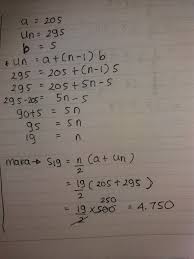 a = 205
Un = 295
b = 5
* Un = a + (n-1) b
295 = 205 + (n-1) 5
295 = 205 + 5n - 5
295 - 205 = 5n - 5
90 + 5 = 5n
95 = 5n
19 = n
maka → S19 = n/2 (a + Un)
= 19/2 (205 + 295)
= 19/2 × 500 250 = 4.750